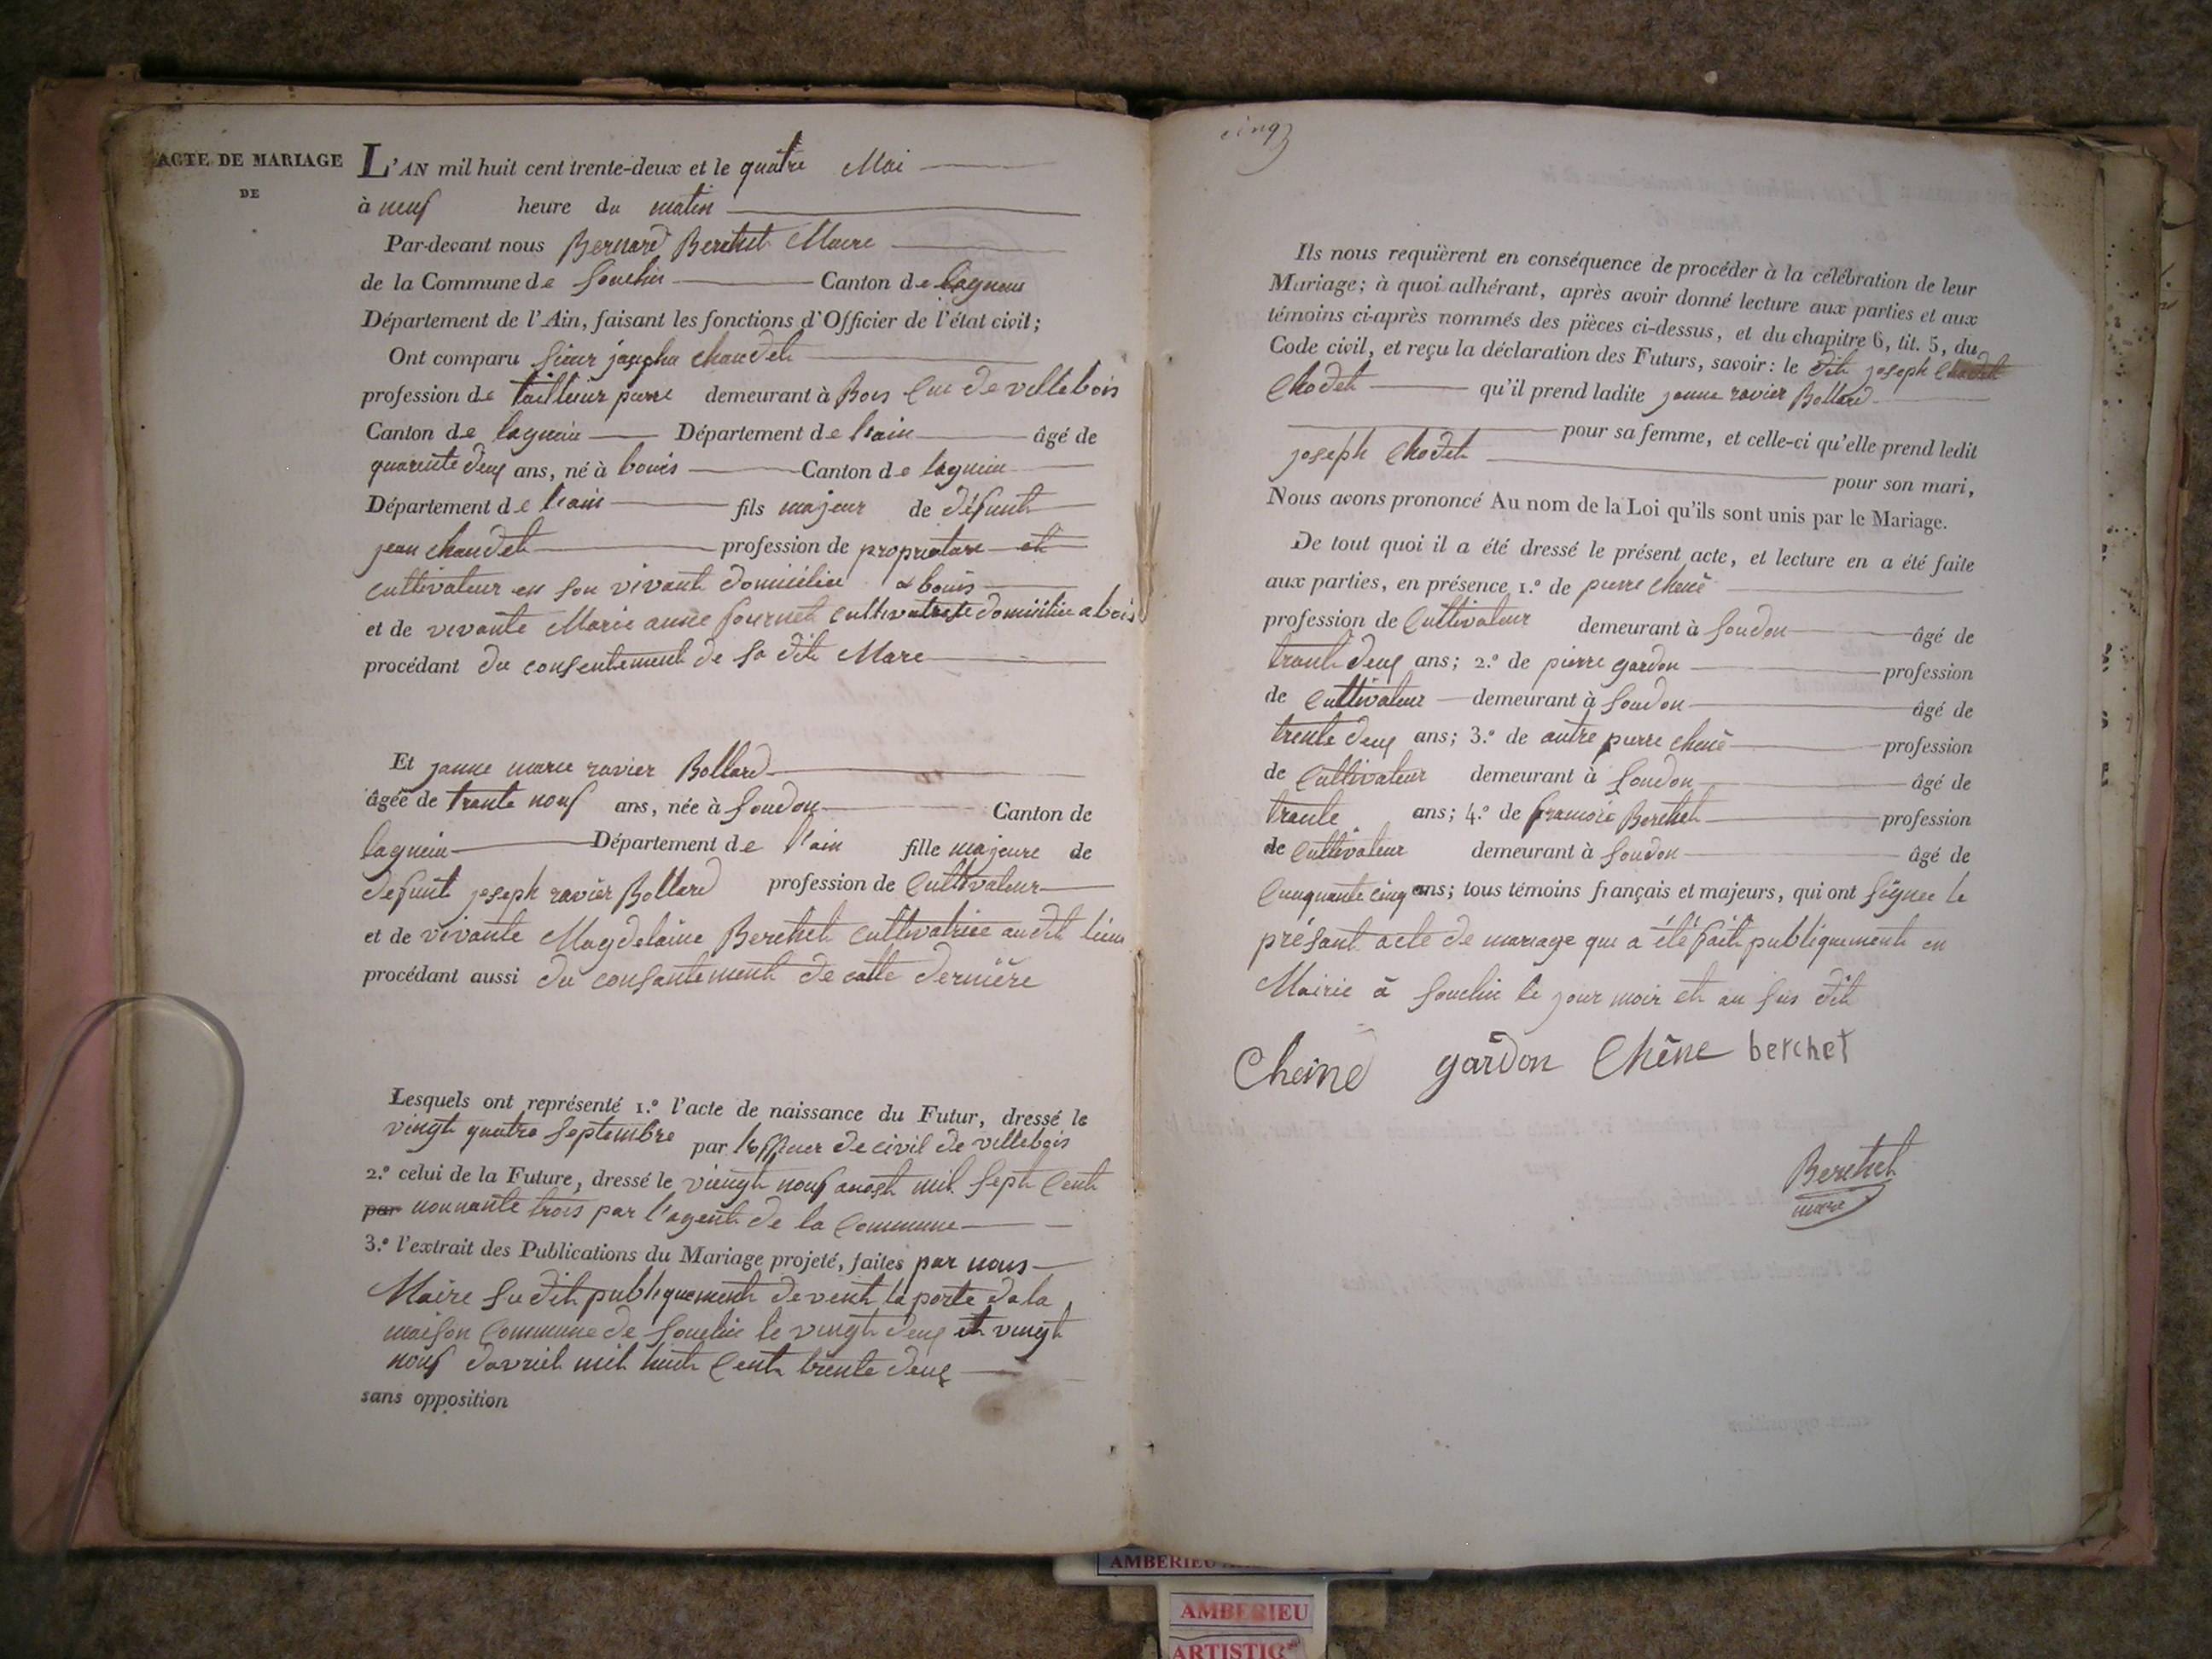 ACTE DE MARIAGE
DE
L'AN mil huit cent trente-deux et le quatre Mai
à neuf heure du matin
Par-devant nous Bernard Berchet Maire
de la Commune de Souclin Canton de Lagneiu
Département de l'Ain, faisant les fonctions d'Officier de l'état civil;
Ont comparu sieur chaudet
profession de tailleur pierre demeurant à Bois de villebois
Canton de lagneiu Département de l'ain âgé de
quarente deux ans, né à bouis Canton de lagneiu
Département de l'ain fils majeur de défunt
jean chaudet profession de propriatare et
cultivateur en son vivant domicilie a bouis
et de vivante Marie anne fournet cultivatrise domicilie a bois
procédant du consentement de sa dite Mare
Et janne marie ravier Bollard
âgée de trante nouf ans, née à soudon Canton de
lagneiu Département de l'ain fille majeure de
defunt joseph ravier Bollard profession de Cultivateur
et de vivante Magdelaine Berchet cultivatrice audit lieu
procédant aussi du consantement de catte dernière
Lesquels ont représenté 1.º l'acte de naissance du Futur, dressé le
vingt quatre septembre par l'officier de civil de villebois
2.º celui de la Future, dressé le vieingt nouf auost mil sept Cent
par nonnante trois par l'agent de la Commune
3.º l'extrait des Publications du Mariage projeté, faites par nous
Maire su dit publiquement devent la porte de la
maison Commune de souclin le vingt deux et vingt
nouf davriel mil huit Cent trente deux
sans opposition
cinq
Ils nous requièrent en conséquence de procéder à la célébration de leur
Mariage; à quoi adhérant, après avoir donné lecture aux parties et aux
témoins ci-après nommés des pièces ci-dessus, et du chapitre 6, tit. 5, du
Code civil, et reçu la déclaration des Futurs, savoir: le dit joseph
Chodet qu'il prend ladite janne ravier Bollard
pour sa femme, et celle-ci qu'elle prend ledit
joseph Chodet
pour son mari,
Nous avons prononcé Au nom de la Loi qu'ils sont unis par le Mariage.
De tout quoi il a été dressé le présent acte, et lecture en a été faite
aux parties, en présence 1.º de pierre chenè
profession de Cultivateur demeurant à soudon âgé de
trante deux ans; 2.º de pierre gardon profession
de Cultivateur demeurant à soudon âgé de
trente deux ans; 3.º de autre pierre chenè profession
de Cultivateur demeurant à soudon âgé de
trante ans; 4.º de francois Berchet profession
de Cultivateur demeurant à soudon âgé de
Cinquante cinq ans; tous témoins français et majeurs, qui ont signee le
présant acte de mariage que a été fait publiquement en
Mairie à souclin le jour moir et an sus dit
Cheine gardon Chêne berchet
Berchet
mare
AMBERIEU
AMBERIEU
ARTISTIQ